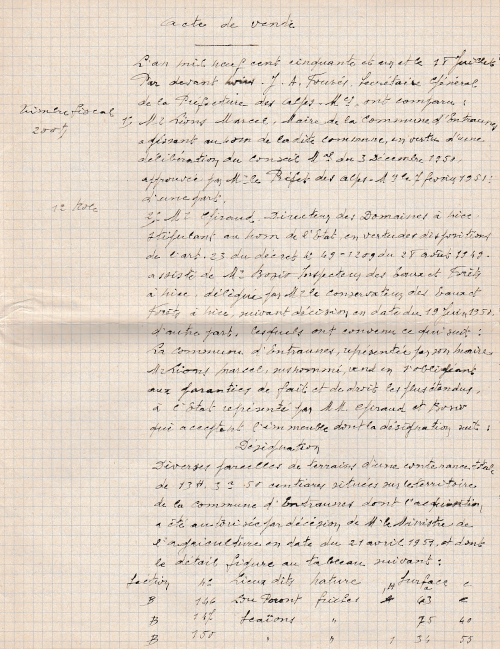 Acte de vende
L'an mil neuf cent cinquante et un et le 18 Juillet
Par devant nous - J. A. Fourès, Secrétaire Général
de la Préfecture des Alpes-Mmes, ont comparu :
Timbre fiscal
200 f
1) Mr Lions Marcel, Maire de la Commune d'Entraunes
agissant au nom de la dite commune, en vertu d'une
délibération du Conseil Mal du 3 Décembre 1950.
approuvée par Mr le Préfet des Alpes-Mmes le 7 février 1951 :
d'une part.
2) Mr Giraud, Directeur des Domaines à Nice
stipulant au nom de l'Etat, en vertu des dispositions
de l'art. 23 du decret No 49-1209 du 28 août 1949-
assisté de Mr Bosio Inspecteur des Eaux et Forêts
à Nice, délégué par Mr le Conservateur des Eaux et
Forêts à Nice, suivant décision en date du 19 Juin 1951,
d'autre part, lesquels ont convenu ce qui suit :
La commune d'Entraunes, représentée par son maire
Mr Lions Marcel, susnommé, vend en s'obligeant
aux garanties de fait et de droit les plus étendus,
à l'Etat représenté par MM. Giraud et Bosio
qui acceptent l'immeuble dont la désignation suit :
Désignation
Diverses parcelles de terrains d'une contenance totale
de 13 H. 3 a 50 centiares situées sur le territoire
de la commune d'Entraunes dont l'acquisition
a été autorisée par décision de Mr le Ministre de
l'agriculture en date du 21 avril 1951, et dont
le détail figure au tableau suivant :
Section No Lieux dits nature H Surface a c
B 144 friches 43
B 147 " 75 40
B 150 " " 1 34 55